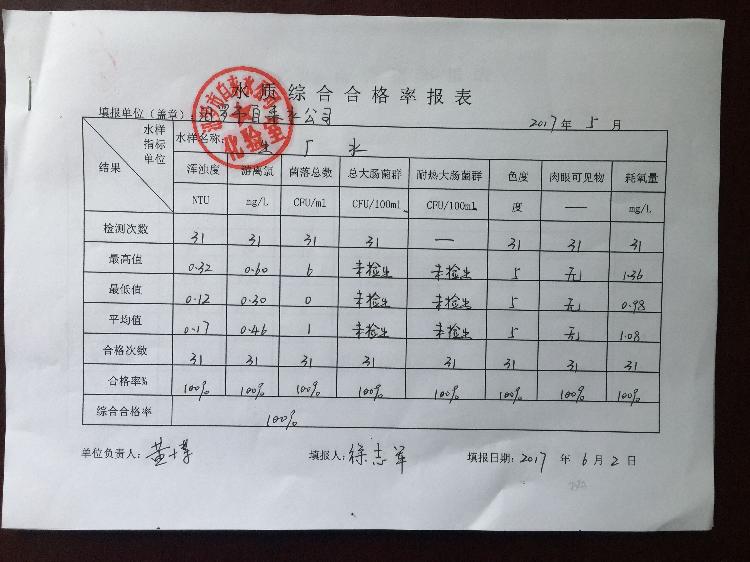 水质综合合格率报表
填报单位(盖章):汨罗市自来水公司 2017年 5 月
水样 指标 单位 结果 水样名称: 出厂水
浑浊度 游离氯 菌落总数 总大肠菌群 耐热大肠菌群 色度 肉眼可见物 耗氧量
NTU mg/L CFU/ml CFU/100mL CFU/100mL 度 — mg/L
检测次数 31 31 31 31 — 31 31 31
最高值 0.32 0.60 6 未检出 未检出 5 无 1.36
最低值 0.12 0.30 0 未检出 未检出 5 无 0.98
平均值 0.17 0.46 1 未检出 未检出 5 无 1.08
合格次数 31 31 31 31 31 31 31 31
合格率% 100% 100% 100% 100% 100% 100% 100% 100%
综合合格率 100%
单位负责人: 填报人:徐志军 填报日期:2017 年 6 月 2 日
汨罗市自来水公司
化验室